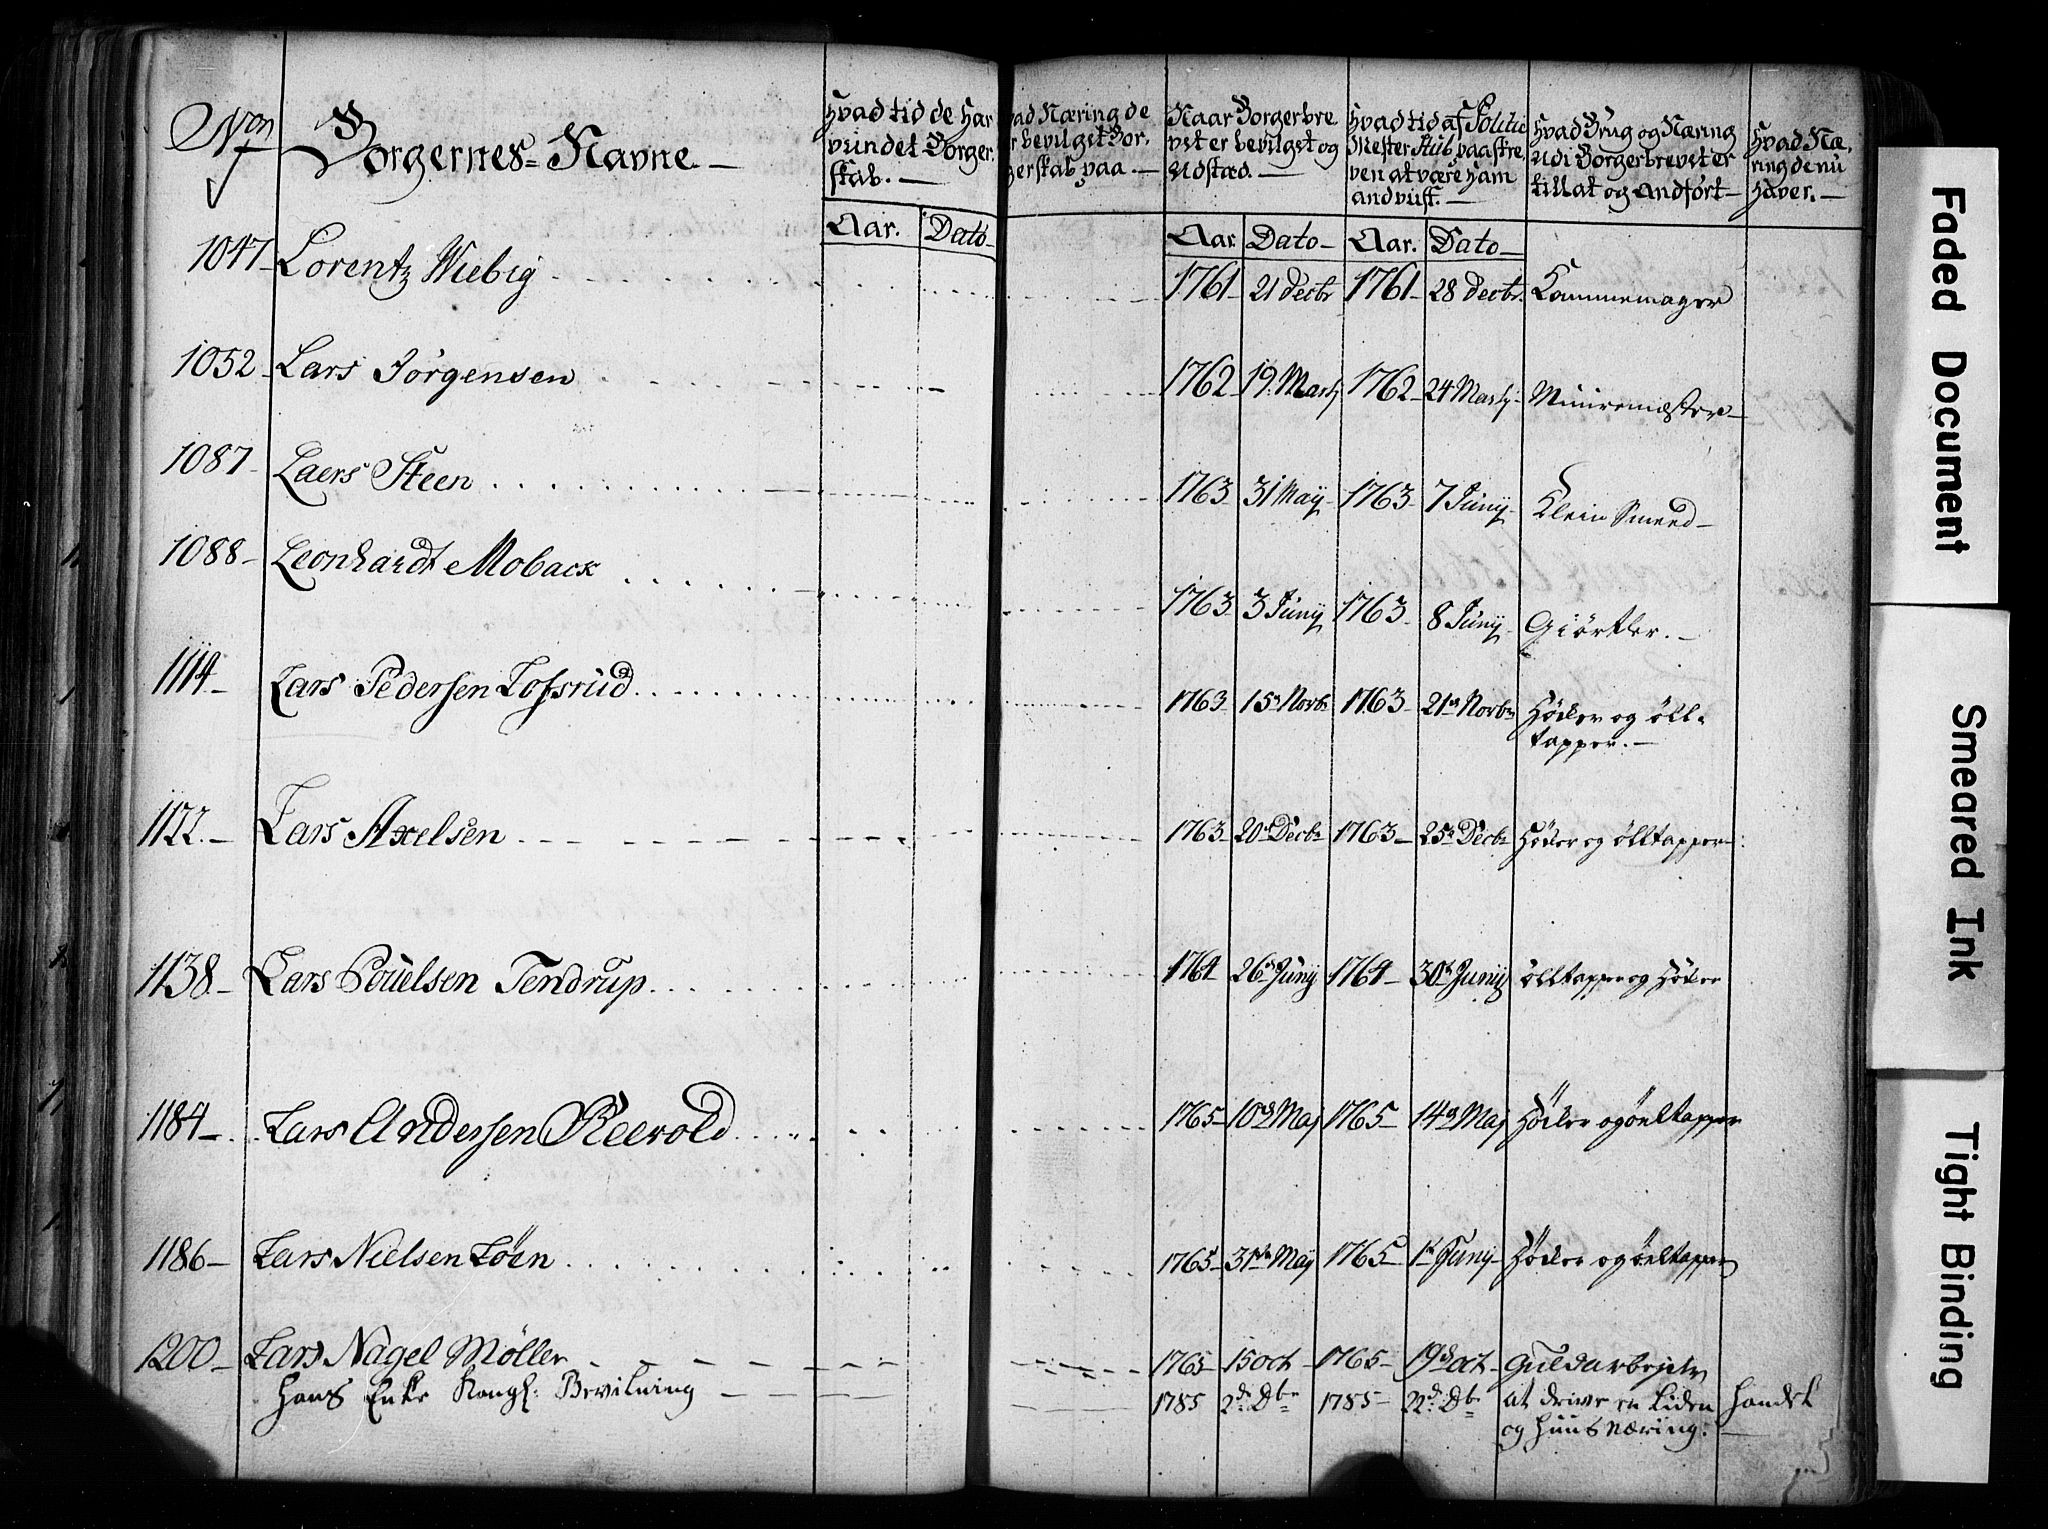 No
Borgernes Navne —
Hvad tid de Har vundet Borgerskab. —
ad Næring de r bevilget Borgerskab paa —
Naar Borgerbrevet er bevilget og Udstæd. —
Hvad tid af Politie Mester Skib paaskreven at være Ham andvist. —
Hvad Brug og Næring Udi Borgerbrevet er tillat og Andført —
Hvad Næring de nu Haver. —
Aar. Dato Aar. Dato Aar. Dato
1047 Lorentz Wiebig 1761 21 Decbr 1761 28 Decbr. Kammemager
1052 Lars Jörgensen 1762 19. Marty 1762 24 Marty Muuremæster
1087 Laers Steen 1763 31 May 1763 7 Juny Klein Smeed
1088 Leonhardt Moback 1763 3 Juny 1763 8 Juny Giörtler.
1114 Lars Pedersen Lofsrud 1763 15 Novbr 1763 21 Novbr Höcker og öll-
tapper.
1122. Lars Axelsen 1763 20 Decbr 1763 25 Decbr Höker og ölltapper
1138 Lars Poüelsen Tendrup 1764 26 Juny 1764 30 Juny ölltapper og Höker
1184 Lars Andersen Reevold 1765 10 Maj 1765 14 Maj Höcker og öeltapper
1186 Lars Nielsen Löen 1765 31 Maj 1765 1 Juny Höcker og öeltapper
1200 Lars Nagel Møller 1765 15 Oct 1765 19 Oct Guldarbejder
Hans Enke Kongl: Bevilning 1785 2d. Dbr 1785 22d. Dbr at drive en Liden Handel
og Huus Næring:
Faded Document
Smeared Ink
Tight Binding